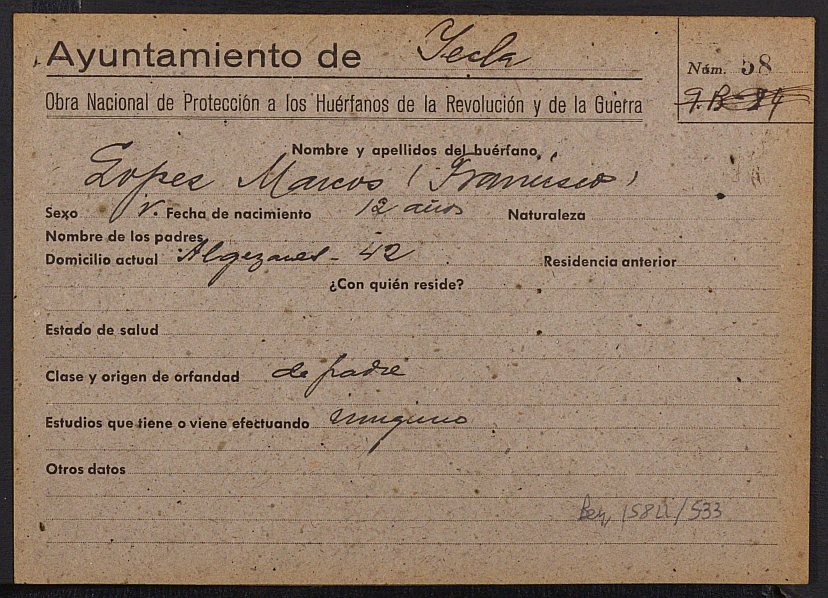 Ayuntamiento de Yecla
Núm. 58
Obra Nacional de Protección a los Huérfanos de la Revolución y de la Guerra
Nombre y apellidos del huérfano,
Lopez Marcos (Francisco)
Sexo V. Fecha de nacimiento 12 años Naturaleza
Nombre de los padres
Domicilio actual Algezares - 42 Residencia anterior
¿Con quién reside?
Estado de salud
Clase y origen de orfandad de padre
Estudios que tiene o viene efectuando ninguno
Otros datos
/533